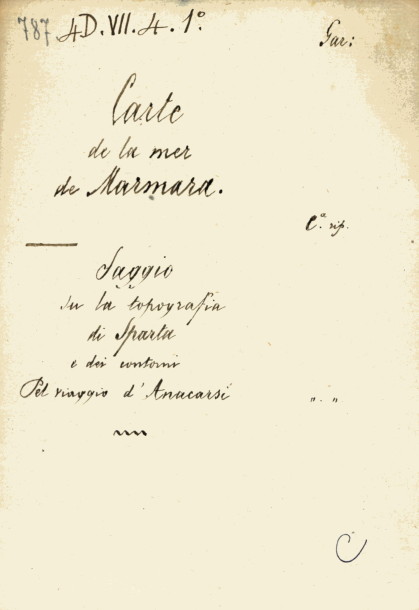 787 4D.VII.4.1º. Gar:
Carte
de la mer
de Marmara.
Cª. rip.
Saggio
su la topografia
di Sparta
e dei contorni
Pel viaggio d'Anacarsi „ . „
C